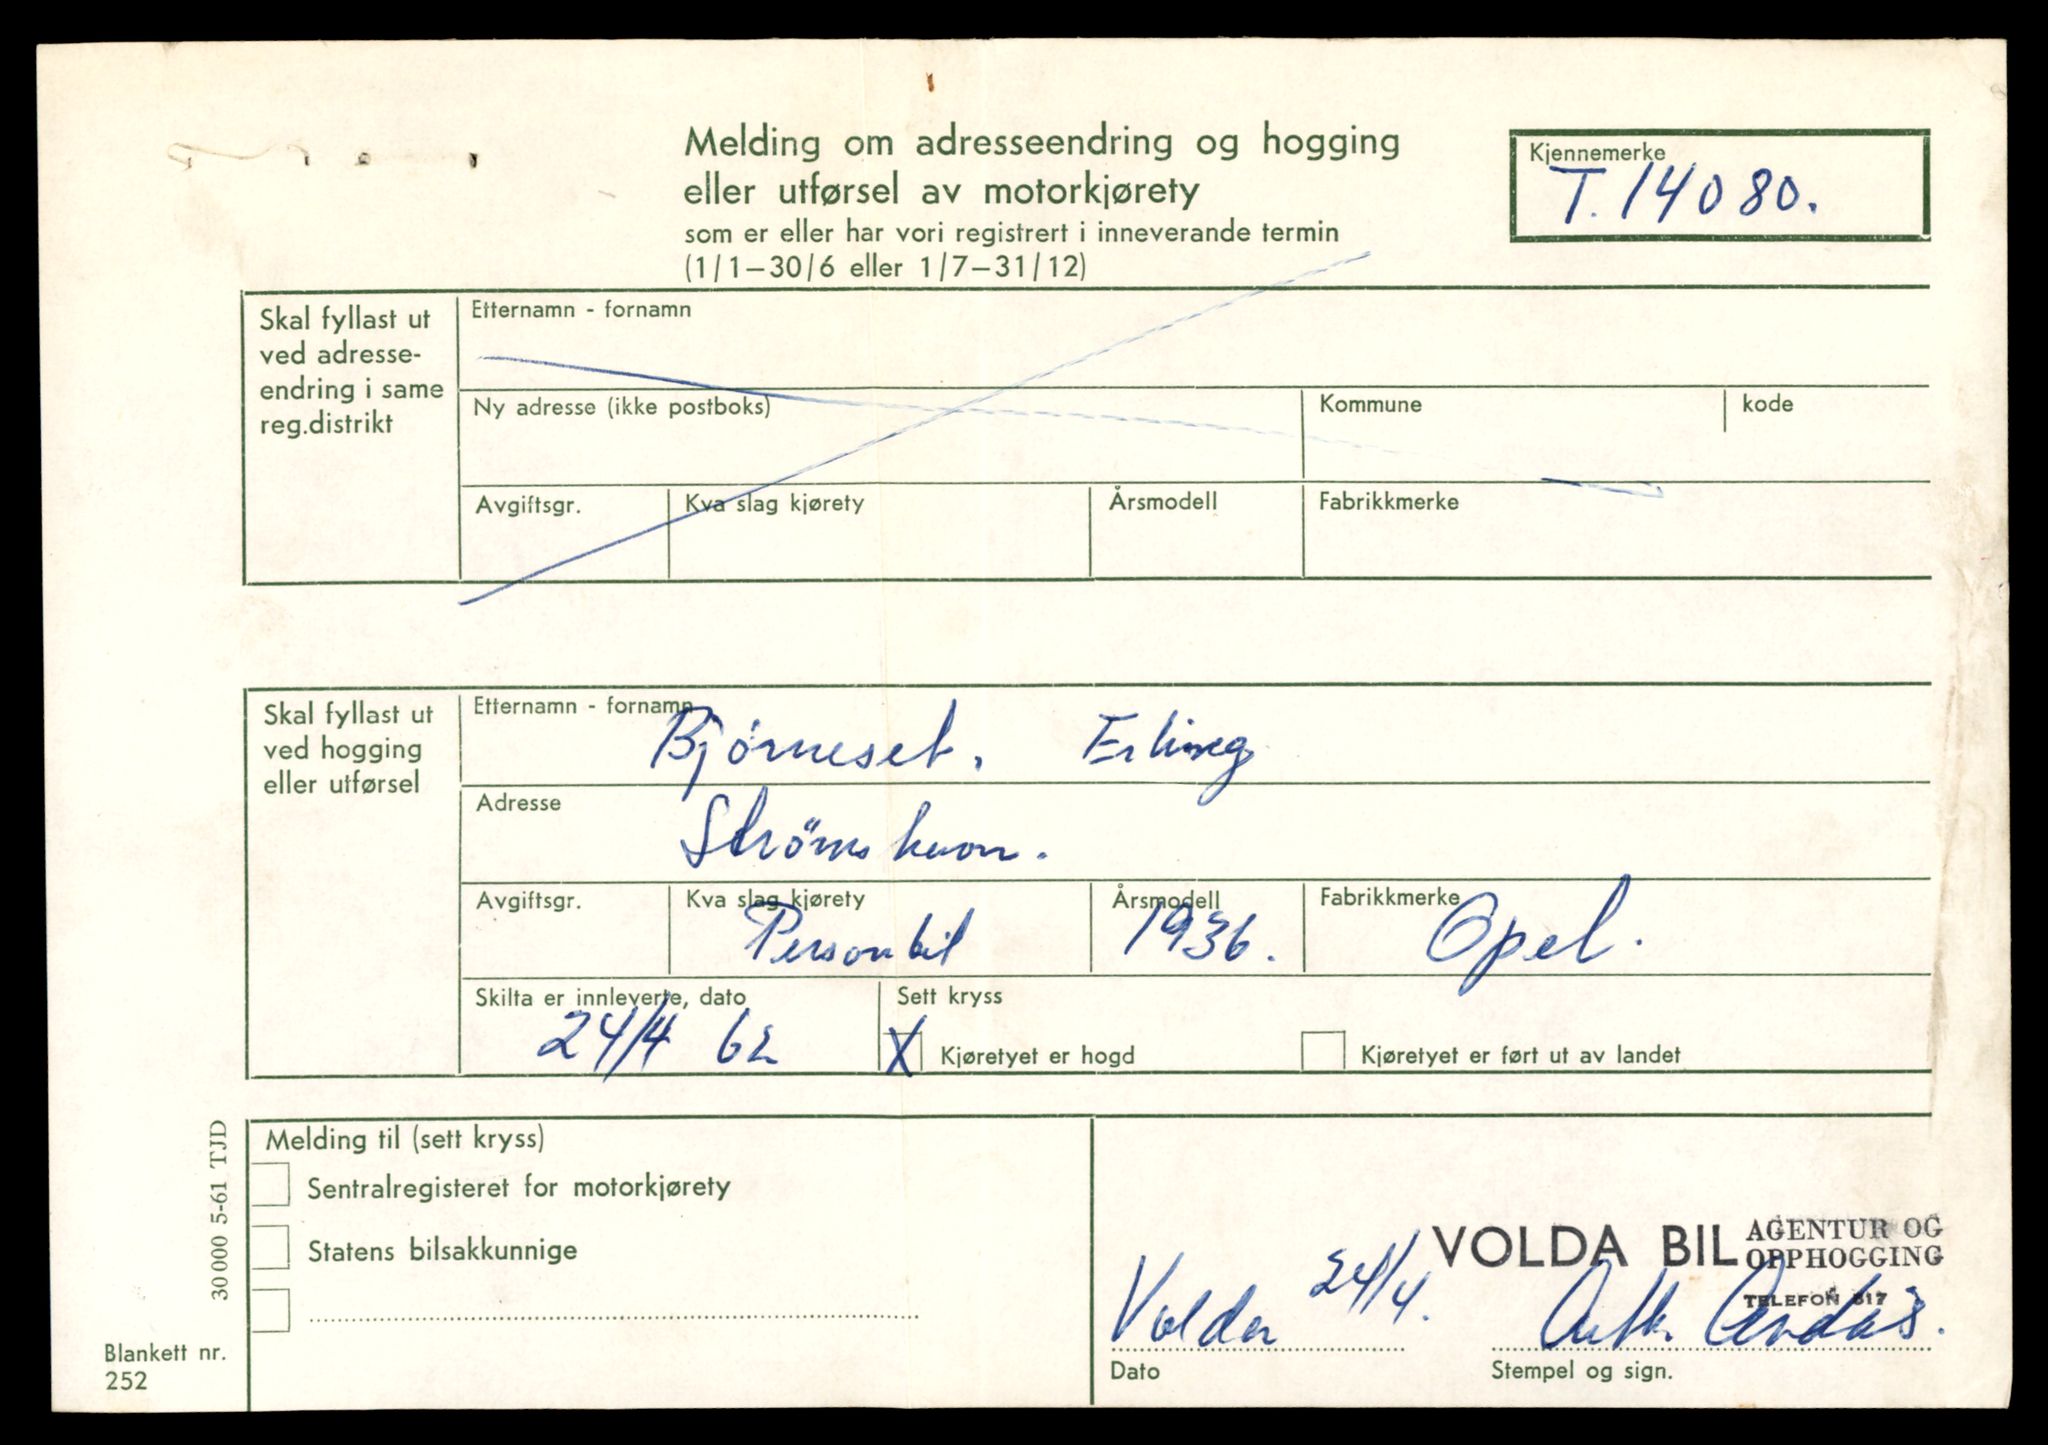 Melding om adresseendring og hogging
eller utførsel av motorkjørety
som er eller har vori registrert i inneverande termin
(1/1–30/6 eller 1/7–31/12)
Kjennemerke
T. 14080.
Skal fyllast ut
ved adresse-
endring i same
reg.distrikt
Etternamn - fornamn
Ny adresse (ikke postboks)
Kommune
kode
Avgiftsgr.
Kva slag kjørety
Årsmodell
Fabrikkmerke
Skal fyllast ut
ved hogging
eller utførsel
Etternamn - fornamn
Bjørneset. Erling
Adresse
Strömshavn.
Avgiftsgr.
Kva slag kjørety
Personbil
Årsmodell
1936.
Fabrikkmerke
Opel.
Skilta er innleverte, dato
24/4 62
Sett kryss
X Kjøretyet er hogd
Kjøretyet er ført ut av landet
Melding til (sett kryss)
Sentralregisteret for motorkjørety
Statens bilsakkunnige
30 000 5-61 TJD
Blankett nr.
252
VOLDA BIL AGENTUR OG
OPPHOGGING
TELEFON 817
Volda 24/4.
Dato
Stempel og sign.